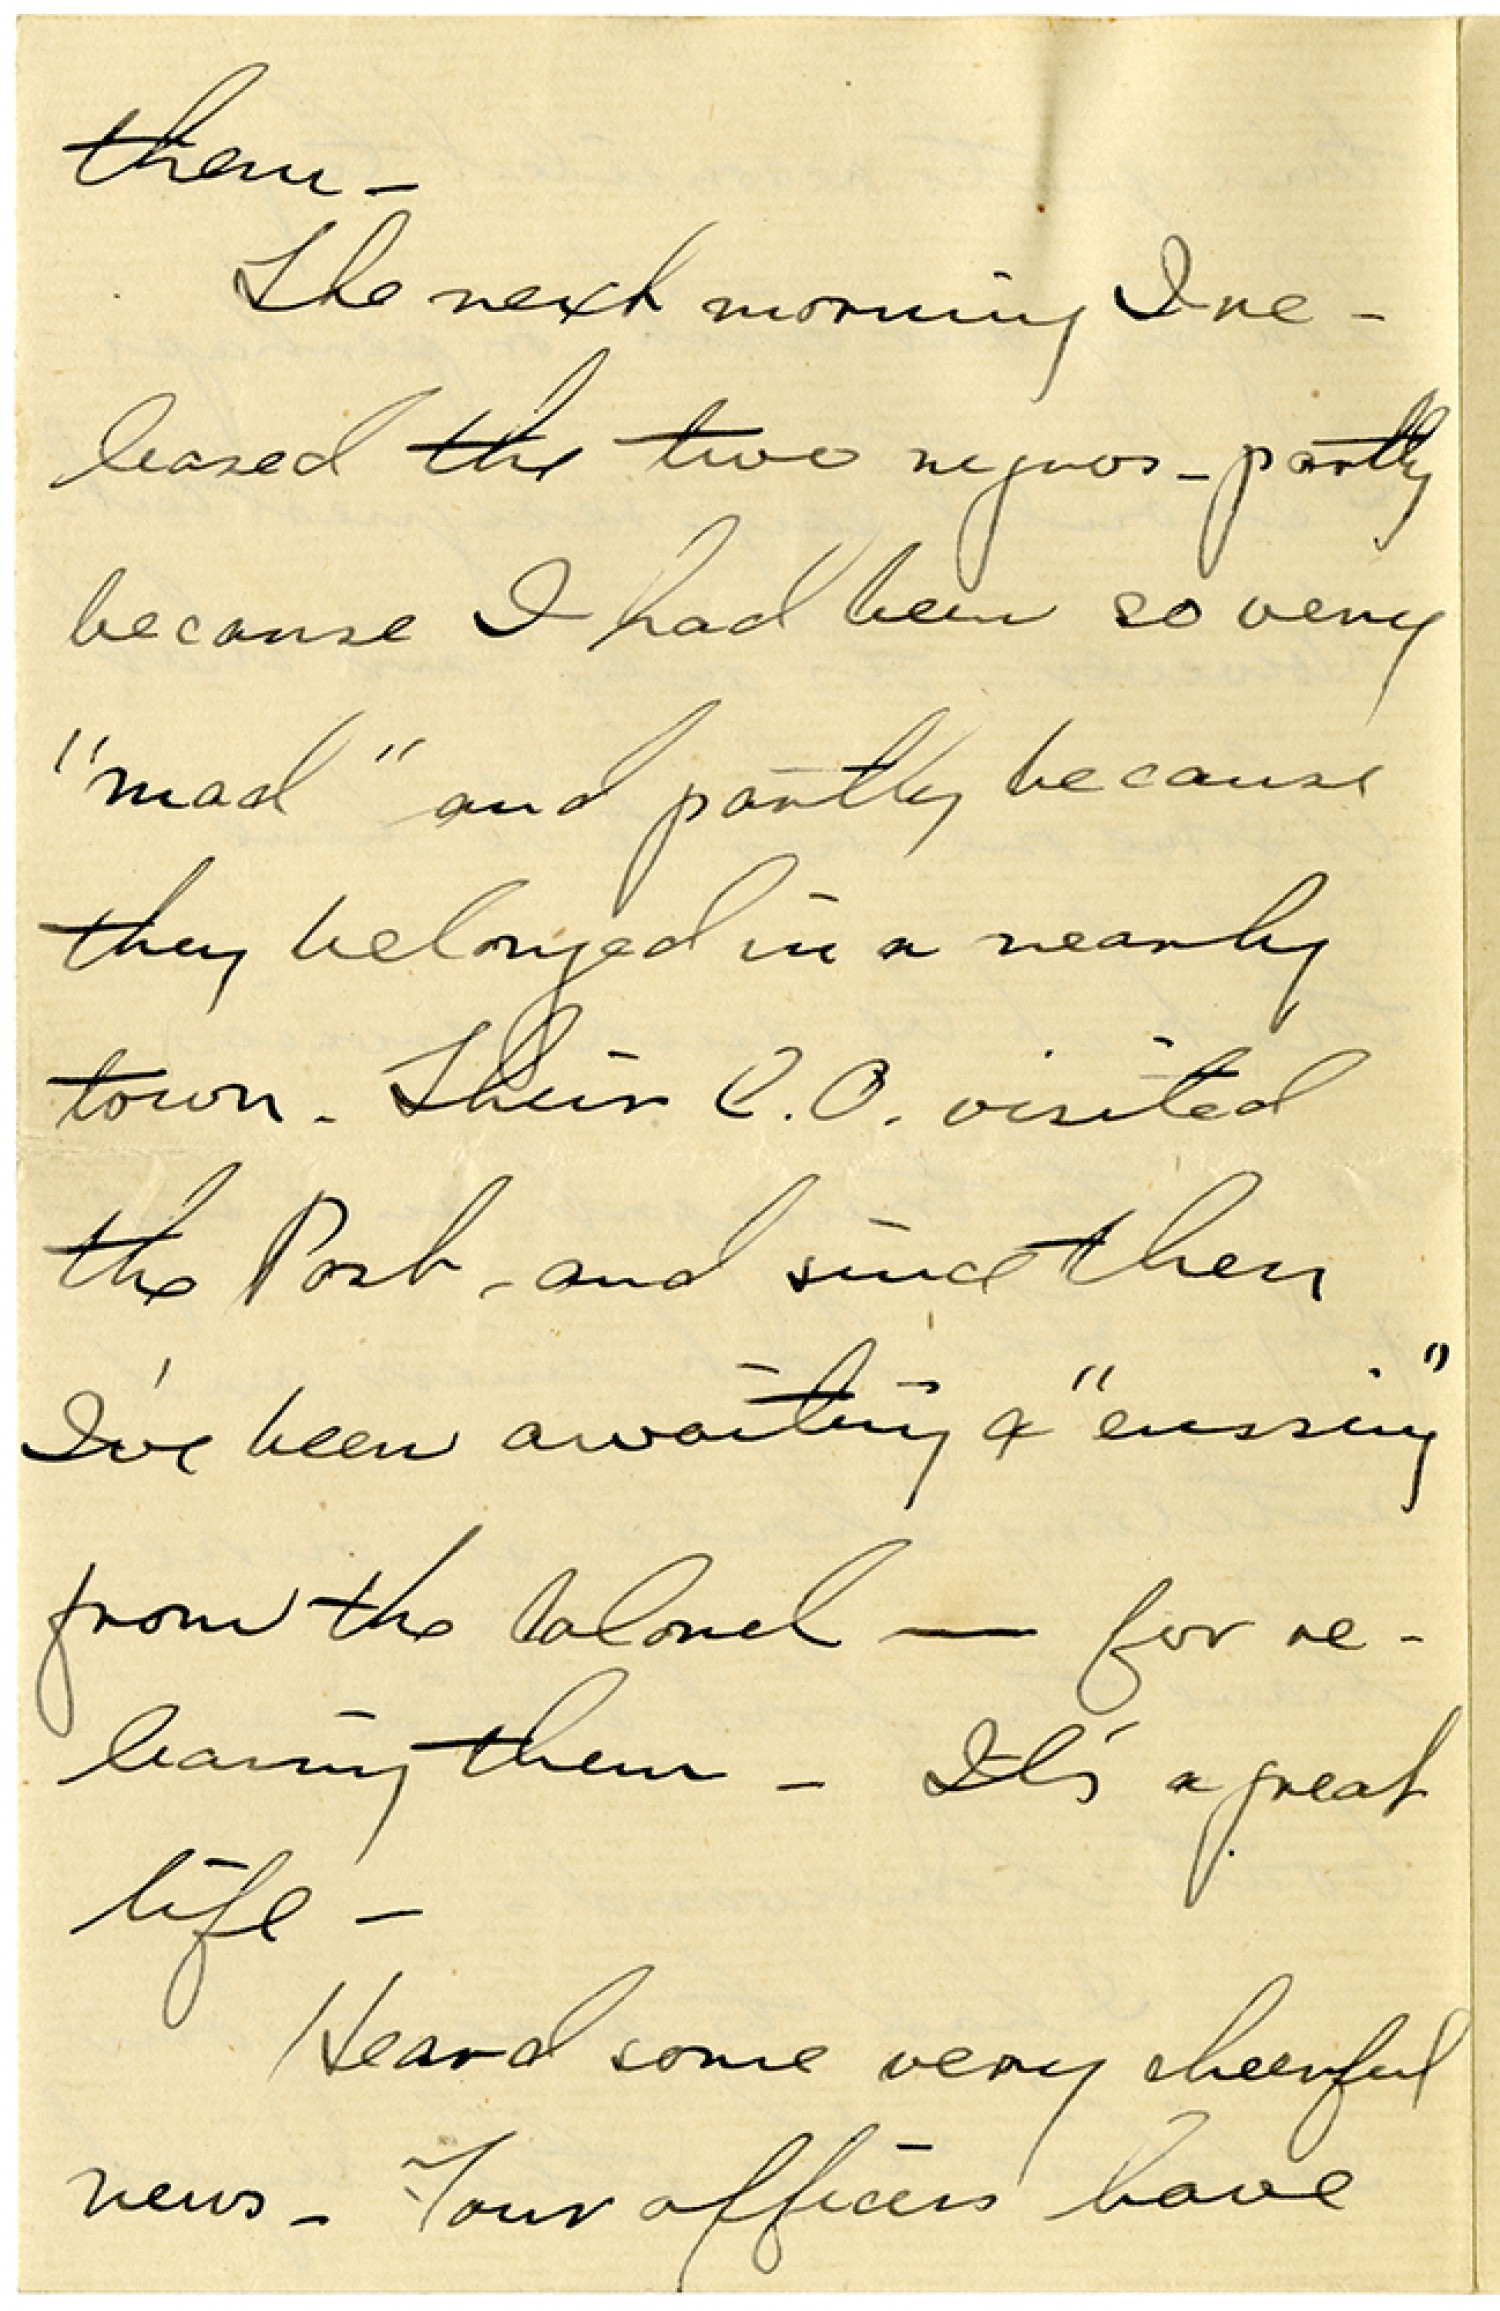 them –
The next morning I re-
leased the two negros – partly
because I had been so very
"mad" and partly because
they belonged in a nearby
town. Their C.O. visited
the Post – and since then
I've been awaiting a "cussing"
from the Colonel — for re-
leasing them – It's a great
life –
Heard some very cheerful
news – Four officers have